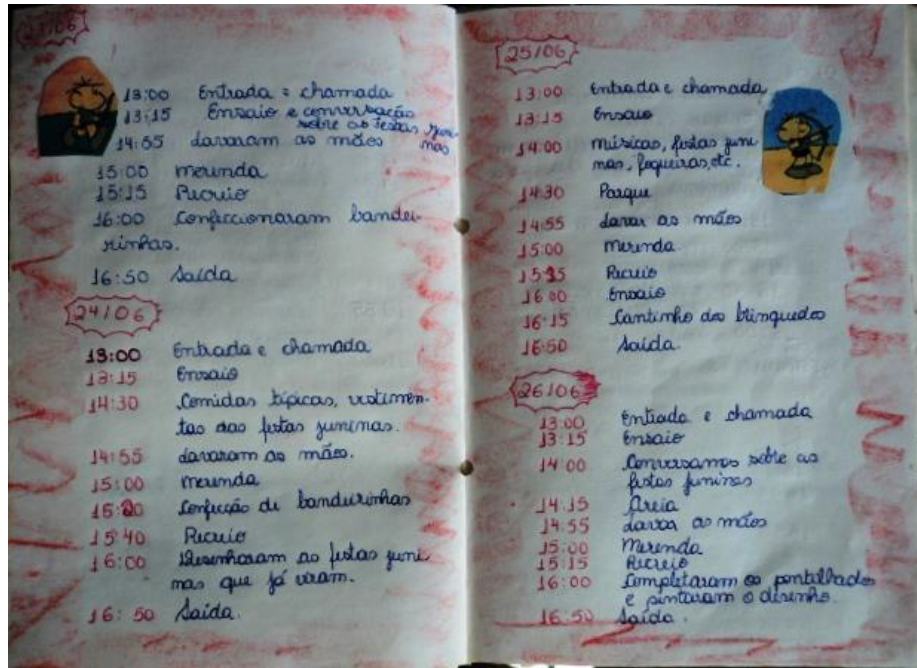 13:00 Entrada e chamada
13:15 Ensaio e conversação
sobre as festas juni
nas
14:55 Lavaram as mãos
15:00 merenda
15:15 Recreio
16:00 Confeccionaram bandei-
rinhas.
16:50 Saída
24/06
13:00 Entrada e chamada
13:15 Ensaio
14:30 Comidas típicas, vestimen-
tas das festas juninas.
14:55 Lavaram as mãos.
15:00 merenda
15:20 Confecção de bandeirinhas
15:40 Recreio
16:00 Desenharam as festas juni
nas que já viram.
16:50 Saída.
25/06
13:00 Entrada e chamada
13:15 Ensaio
14:00 músicas, festas juni
nas, fogueiras, etc.
14:30 Parque
14:55 Lavar as mãos
15:00 merenda
15:15 Recreio
16:00 Ensaio
16:15 Cantinho dos brinquedos
16:50 Saída.
26/06
13:00 Entrada e chamada
13:15 Ensaio
14:00 Conversamos sobre as
festas juninas
14:15 Areia
14:55 Lavar as mãos
15:00 Merenda
15:15 Recreio
16:00 Completaram os pontilhados
e pintaram o desenho.
16:50 Saída.